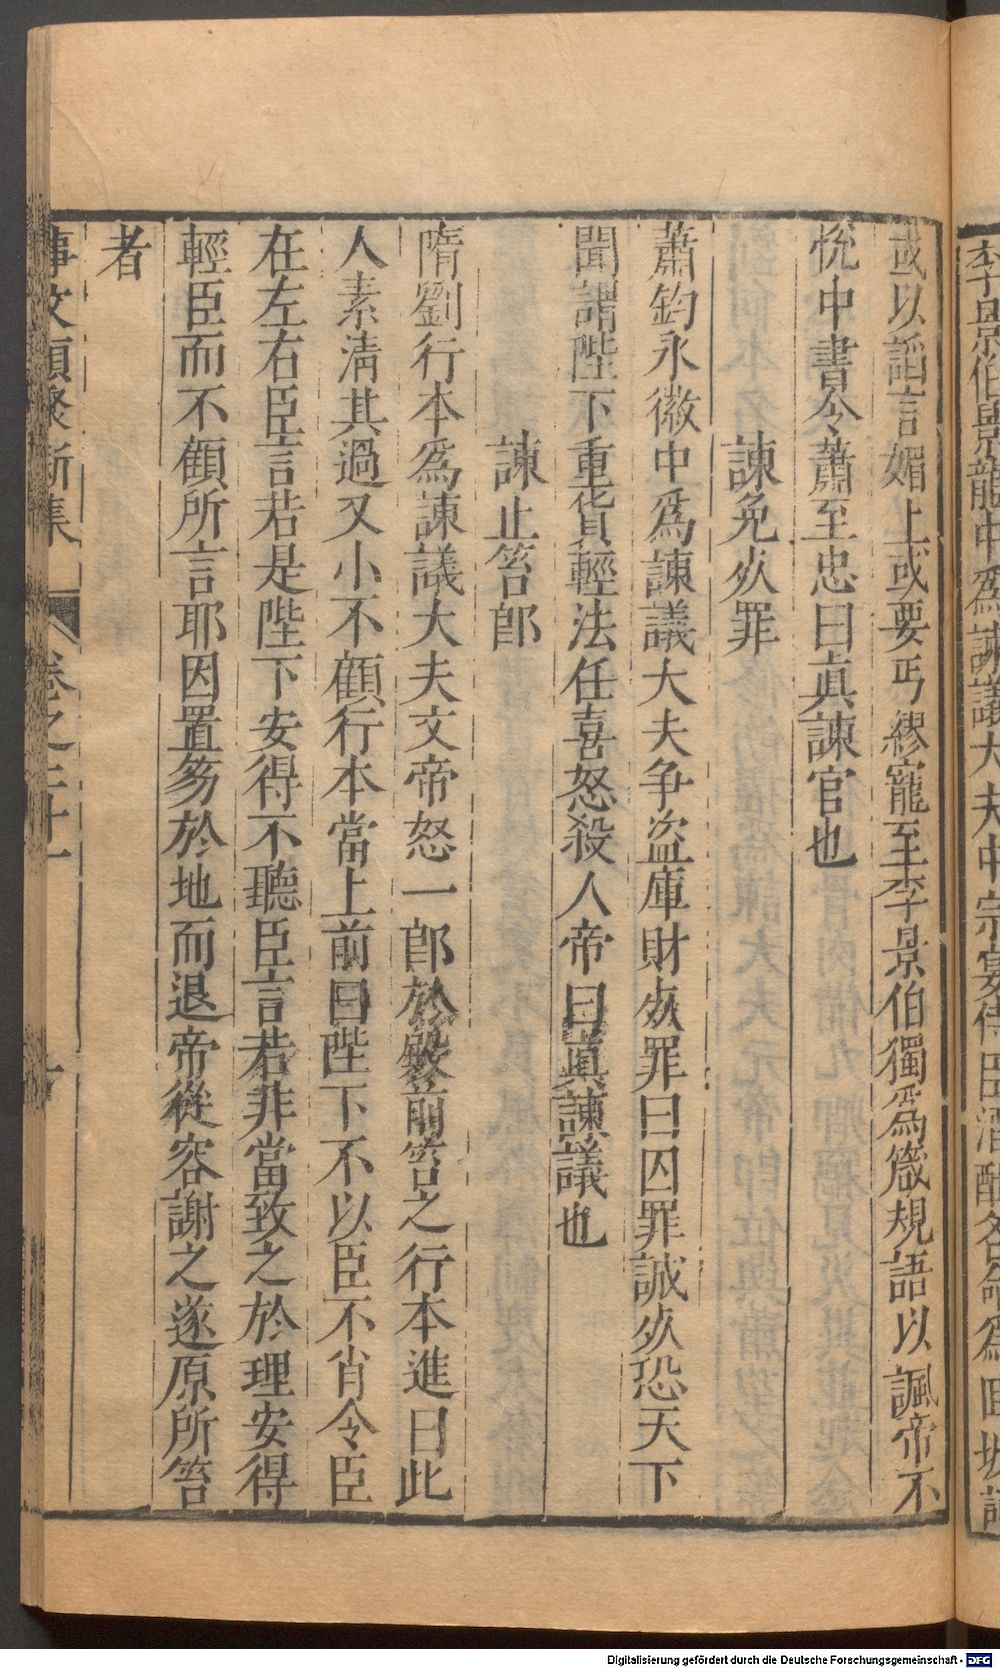 李景伯景龍中爲諫議大夫中宗宴侍臣酒酣各命爲回波詞
或以謟言媚上或要丐繆寵至李景伯獨爲箴規語以諷帝不
悅中書令蕭至忠曰眞諫官也
諫免死罪
蕭鈞永徽中爲諫議大夫争盜庫財死罪曰囚罪誠死恐天下
聞謂陛下重貨輕法任喜怒殺人帝曰眞諫議也
諫止笞郎
隋劉行本爲諫議大夫文帝怒一郎於殿前笞之行本進曰此
人素淸其過又小不顧行本當上前曰陛下不以臣不肖令臣
在左右臣言若是陛下安得不聽臣言若非當致之於理安得
輕臣而不顧所言耶因置笏於地而退帝從容謝之遂原所笞
者
事文類聚新集 卷之二十一
Digitalisierung gefördert durch die Deutsche Forschungsgemeinschaft - DFG